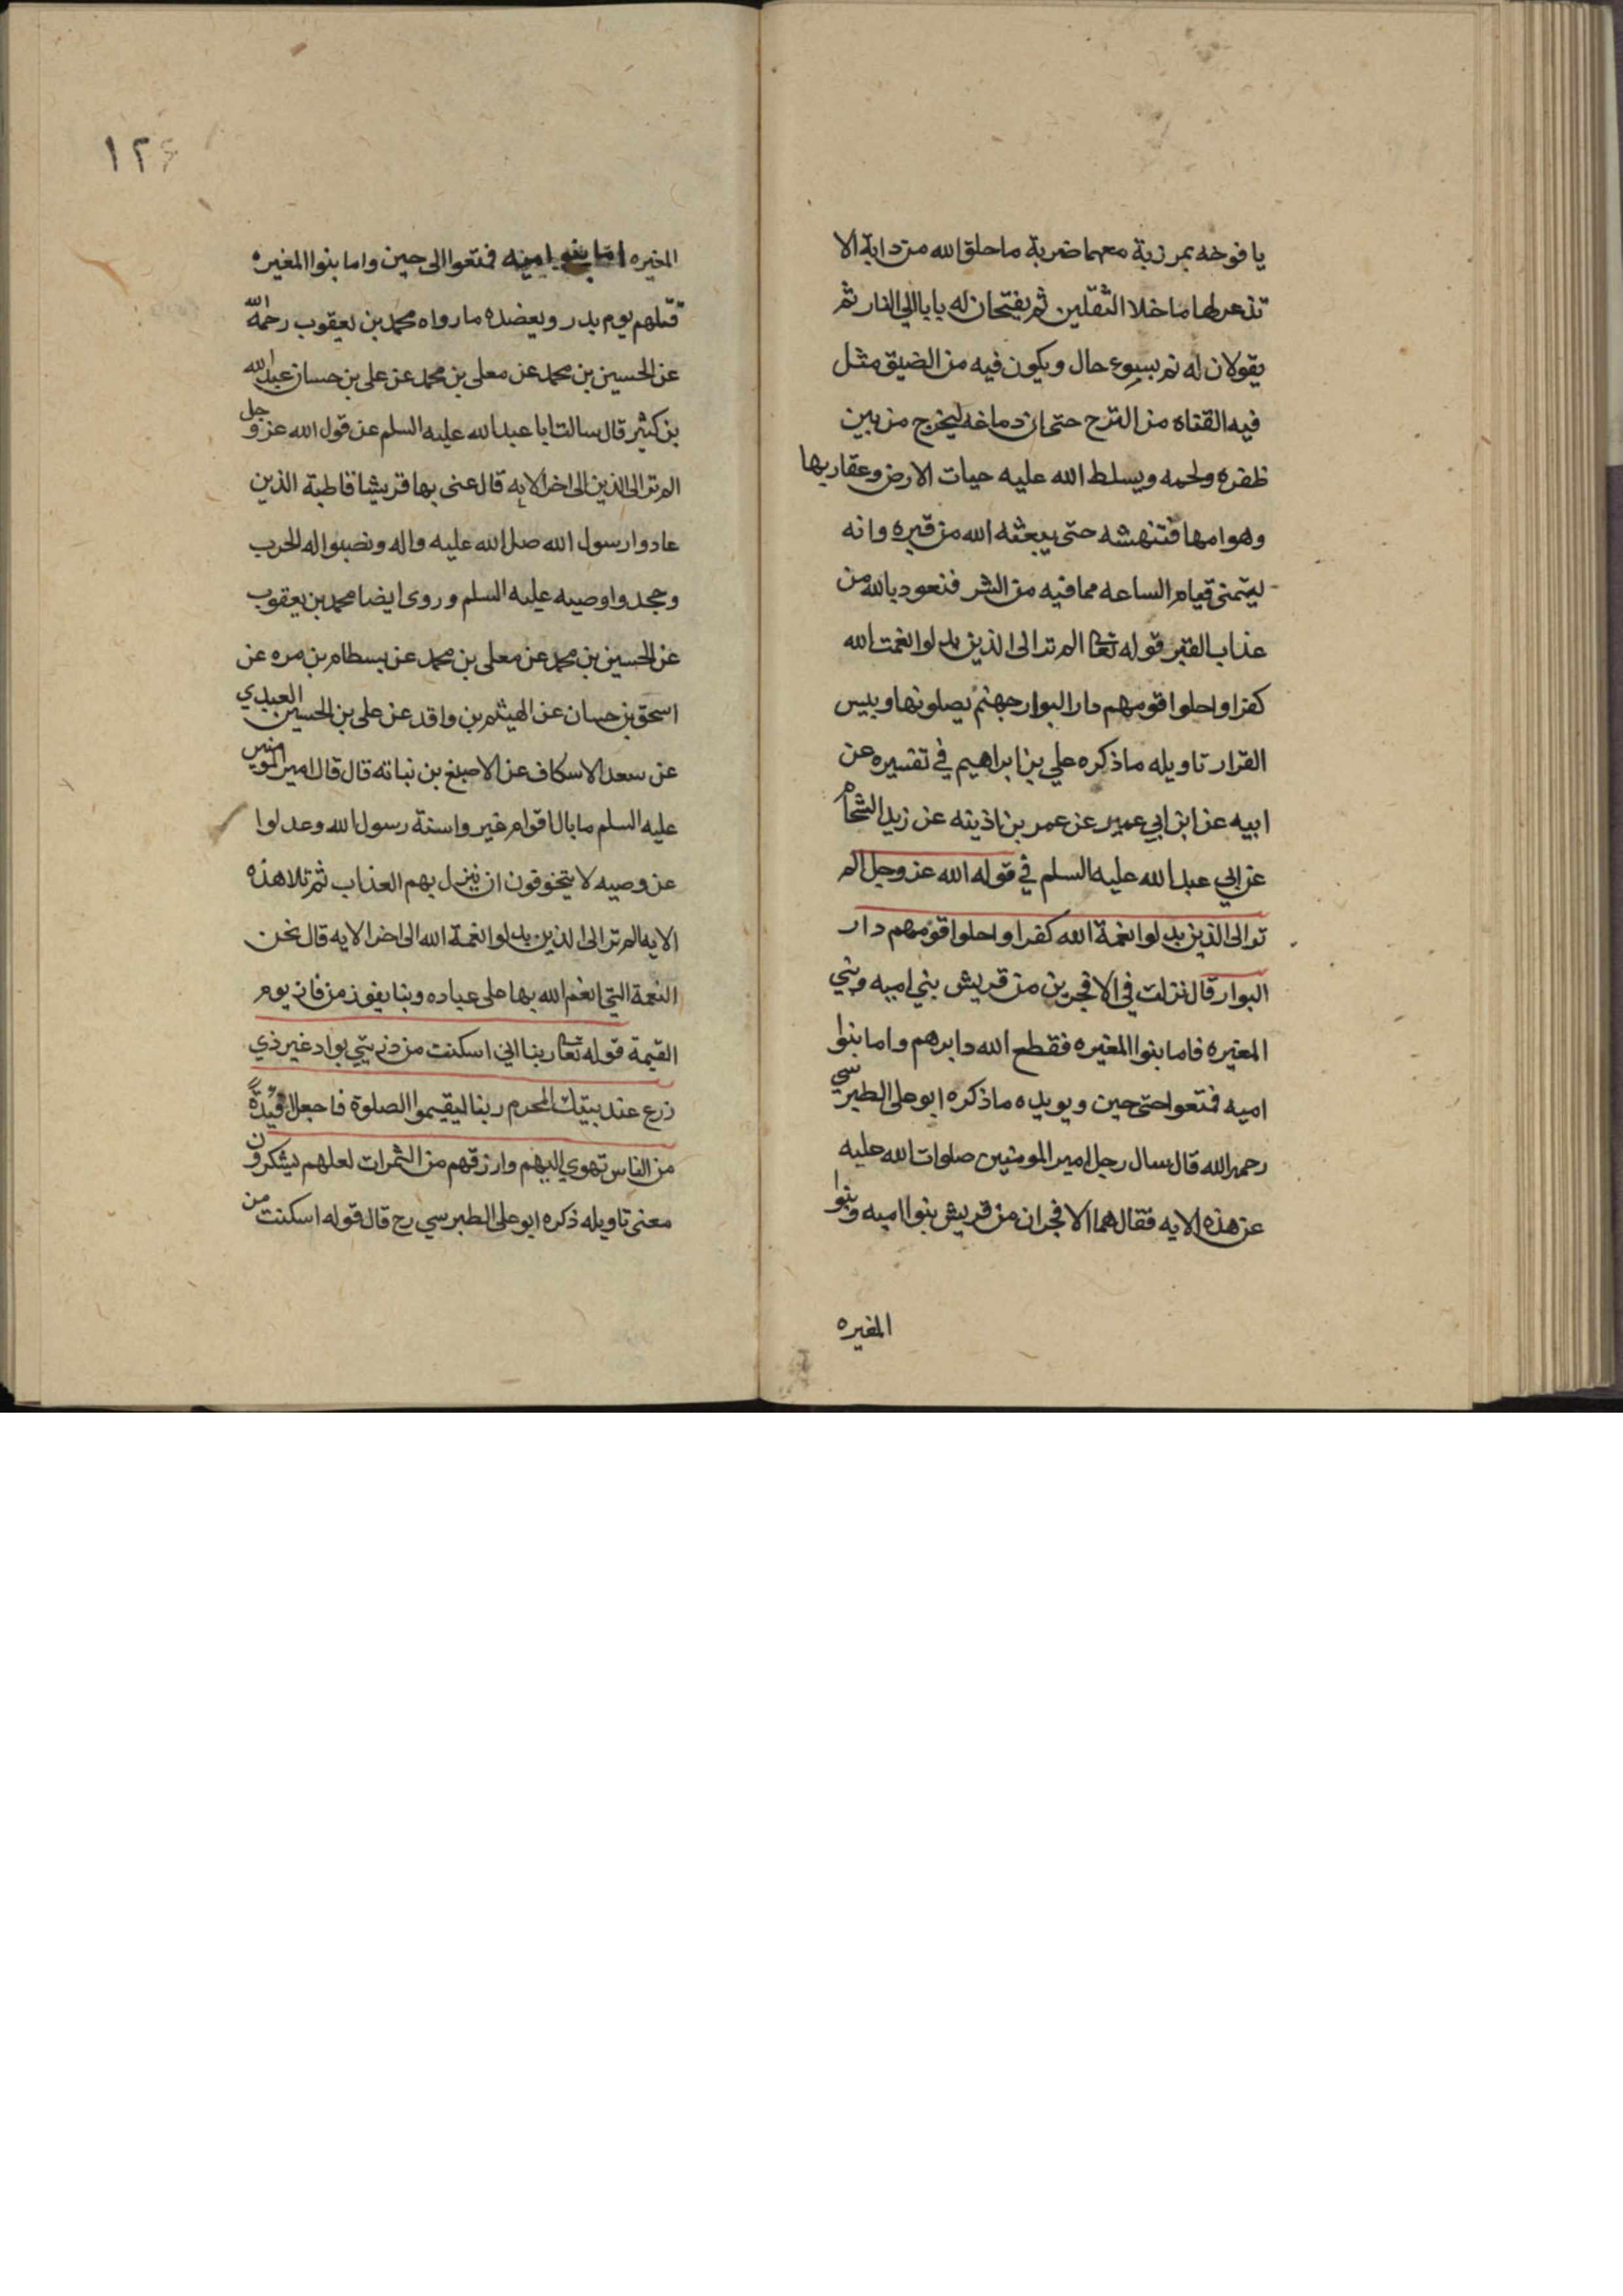 يا فوخه بمرزبة معهما ضربة ما خلق الله من دابة الا
تذعر لها ما خلا الثقلين ثم يفتحان له بابا الي النار ثم
يقولان له نم بسوء حال ويكون فيه من الضيق مثل
فيه القناه من الترح حتى ان دماغه ليخرج من بين
ظفره ولحمه ويسلط الله عليه حيات الارض وعقاربها
وهوامها فتنهشه حتى يبعثه الله من قبره وانه
ليتمنى قيام الساعه مما فيه من الشر فنعود بالله من
عذاب القبر قوله تعا الم تر الى الذين بدلوا نعمت الله
كفرا واحلوا قومهم دار البوار جهنم يصلونها وبيس
القرار تاويله ما ذكره علي بن ابراهيم في تفسيره عن
ابيه عن ابن ابي عمير عن عمر بن اذينه عن زيد الشحام
عن ابي عبد الله عليه السلم في قوله الله عز وجل الم
تر الى الذين بدلوا نعمة الله كفرا واحلوا قومهم دار
البوار قال نزلت في الافجرين من قريش بني اميه وبني
المغيره فاما بنوا المغيره فقطع الله دابرهم واما بنوا
اميه فمتعوا حتى حين ويويده ما ذكره ابو على الطبرسي
رحمه الله قال سال رجل امير المومنين صلوات الله عليه
عن هذه الايه فقال هما الافجران من قريش بنوا اميه وبنوا
المغيره
١٢٤
المغيره اما بنو اميه فمتعوا الى حين واما بنوا المغيره
قتلهم يوم بدر ويعضده ما رواه محمد بن يعقوب رحمه الله
عن الحسين بن محمد عن معلى بن محمد عن على بن حسان عبد الله
بن كثير قال سالت ابا عبد الله عليه السلم عن قول الله عز وجل
الم تر الى الذين الى اخر الايه قال عنى بها قريشا قاطبة الذين
عادوا رسول الله صلى الله عليه واله ونصبوا له الحرب
وجحدوا وصيه عليه السلم وروى ايضا محمد بن يعقوب
عن الحسين بن محمد عن معلى بن محمد عن بسطام بن مره عن
اسحق بن حسان عن الهيثم بن واقد عن على بن الحسين العبدي
عن سعد الاسكاف عن الاصبغ بن نباته قال قال امير المومنين
عليه السلم ما بال اقوام غيروا سنة رسول الله وعدلوا
عن وصيه لا يتخوفون ان ينزل بهم العذاب ثم تلا هذه
الايه الم تر الى الذين بدلوا نعمة الله الى اخر الايه قال نحن
النعمة التي انعم الله بها على عباده وبنا يفوز من فاز يوم
القيمة قوله تعا ربنا اني اسكنت من ذريتي بواد غير ذي
زرع عند بيتك المحرم ربنا ليقيموا الصلوة فاجعل افئدة
من الناس تهوي اليهم وارزقهم من الثمرات لعلهم يشكرون
معنى تاويله ذكره ابو على الطبرسي رح قال قوله اسكنت من